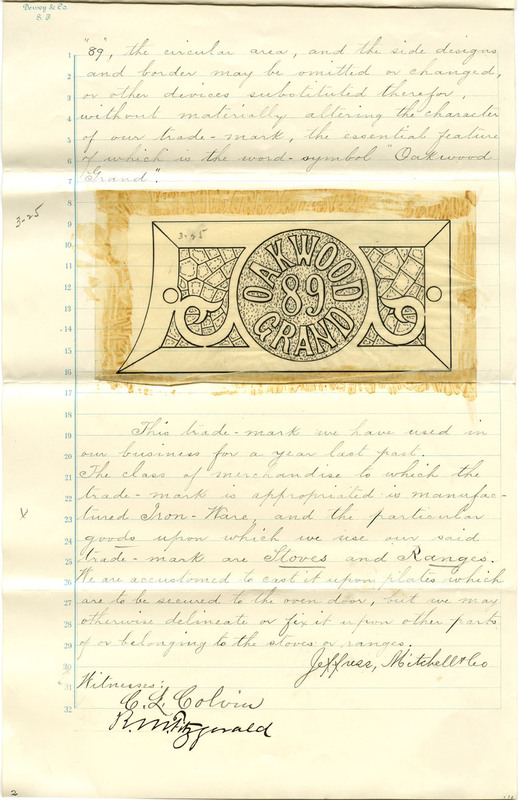 Dewey & Co.
S. F.
1 "89", the circular area, and the side designs
2 and border may be omitted or changed,
3 or other devices substituted therefor,
4 without materially altering the character
5 of our trade-mark, the essential feature
6 of which is the word-symbol "Oakwood
7 Grand".
8
3-25
9
3-25
10
11 OAKWOOD
12 89
13 GRAND
14
15
16
17
18
19 This trade-mark we have used in
20 our business for a year last past.
21 The class of merchandise to which the
22 trade-mark is appropriated is manufac-
23 tured Iron-Ware, and the particular
24 goods upon which we use our said
25 trade-mark are Stoves and Ranges.
26 We are accustomed to cast it upon plates which
27 are to be secured to the oven door, but we may
28 otherwise delineate or fix it upon other parts
29 of or belonging to the stoves or ranges.
30 Jeffress, Mitchell & Co
31 Witnesses:
C. L. Colvin
32
R. M. Fitzgerald
2